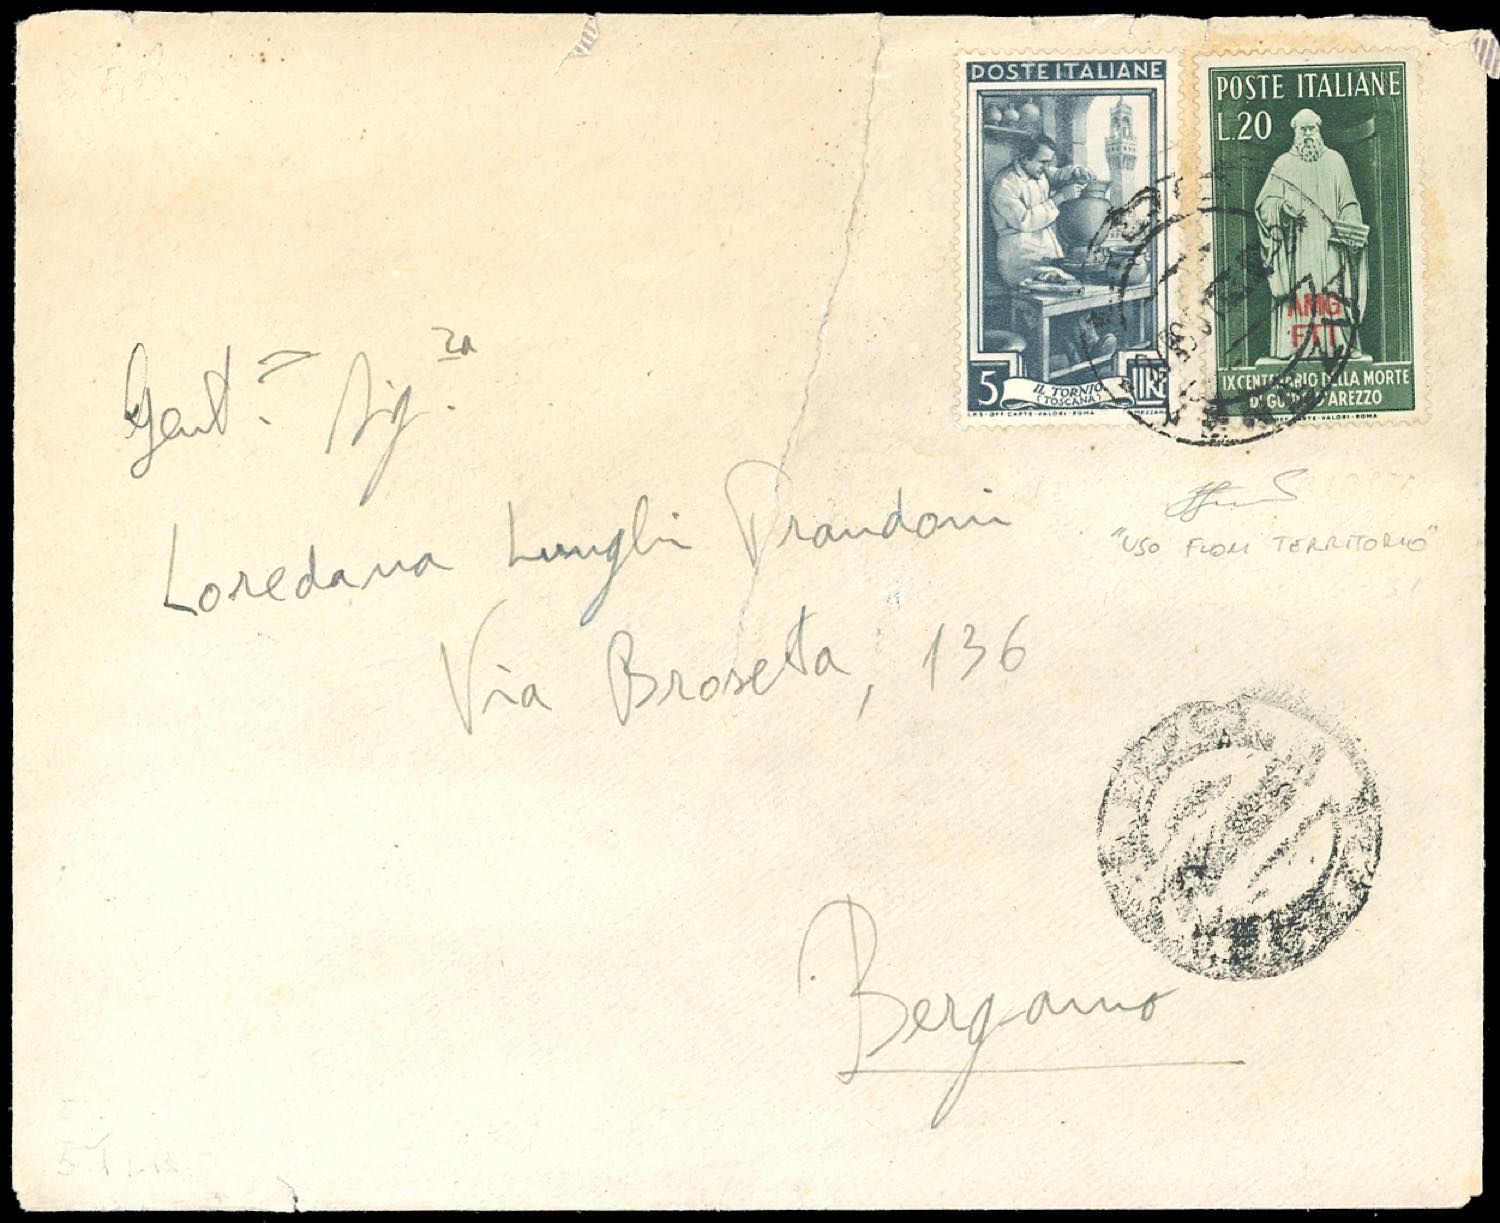 POSTE ITALIANE
5 IL TORNIO LIRE
(TOSCANA)
I.P.S. OFF. CARTE-VALORI-ROMA
POSTE ITALIANE
L.20
AMG
FTT
IX CENTENARIO DELLA MORTE
DI GUIDO D'AREZZO
OFF. CARTE-VALORI-ROMA
Gent. Sig.ra
Loredana Lunghi Prandoni
"USO FUORI TERRITORIO"
Via Broseta, 136
Bergamo